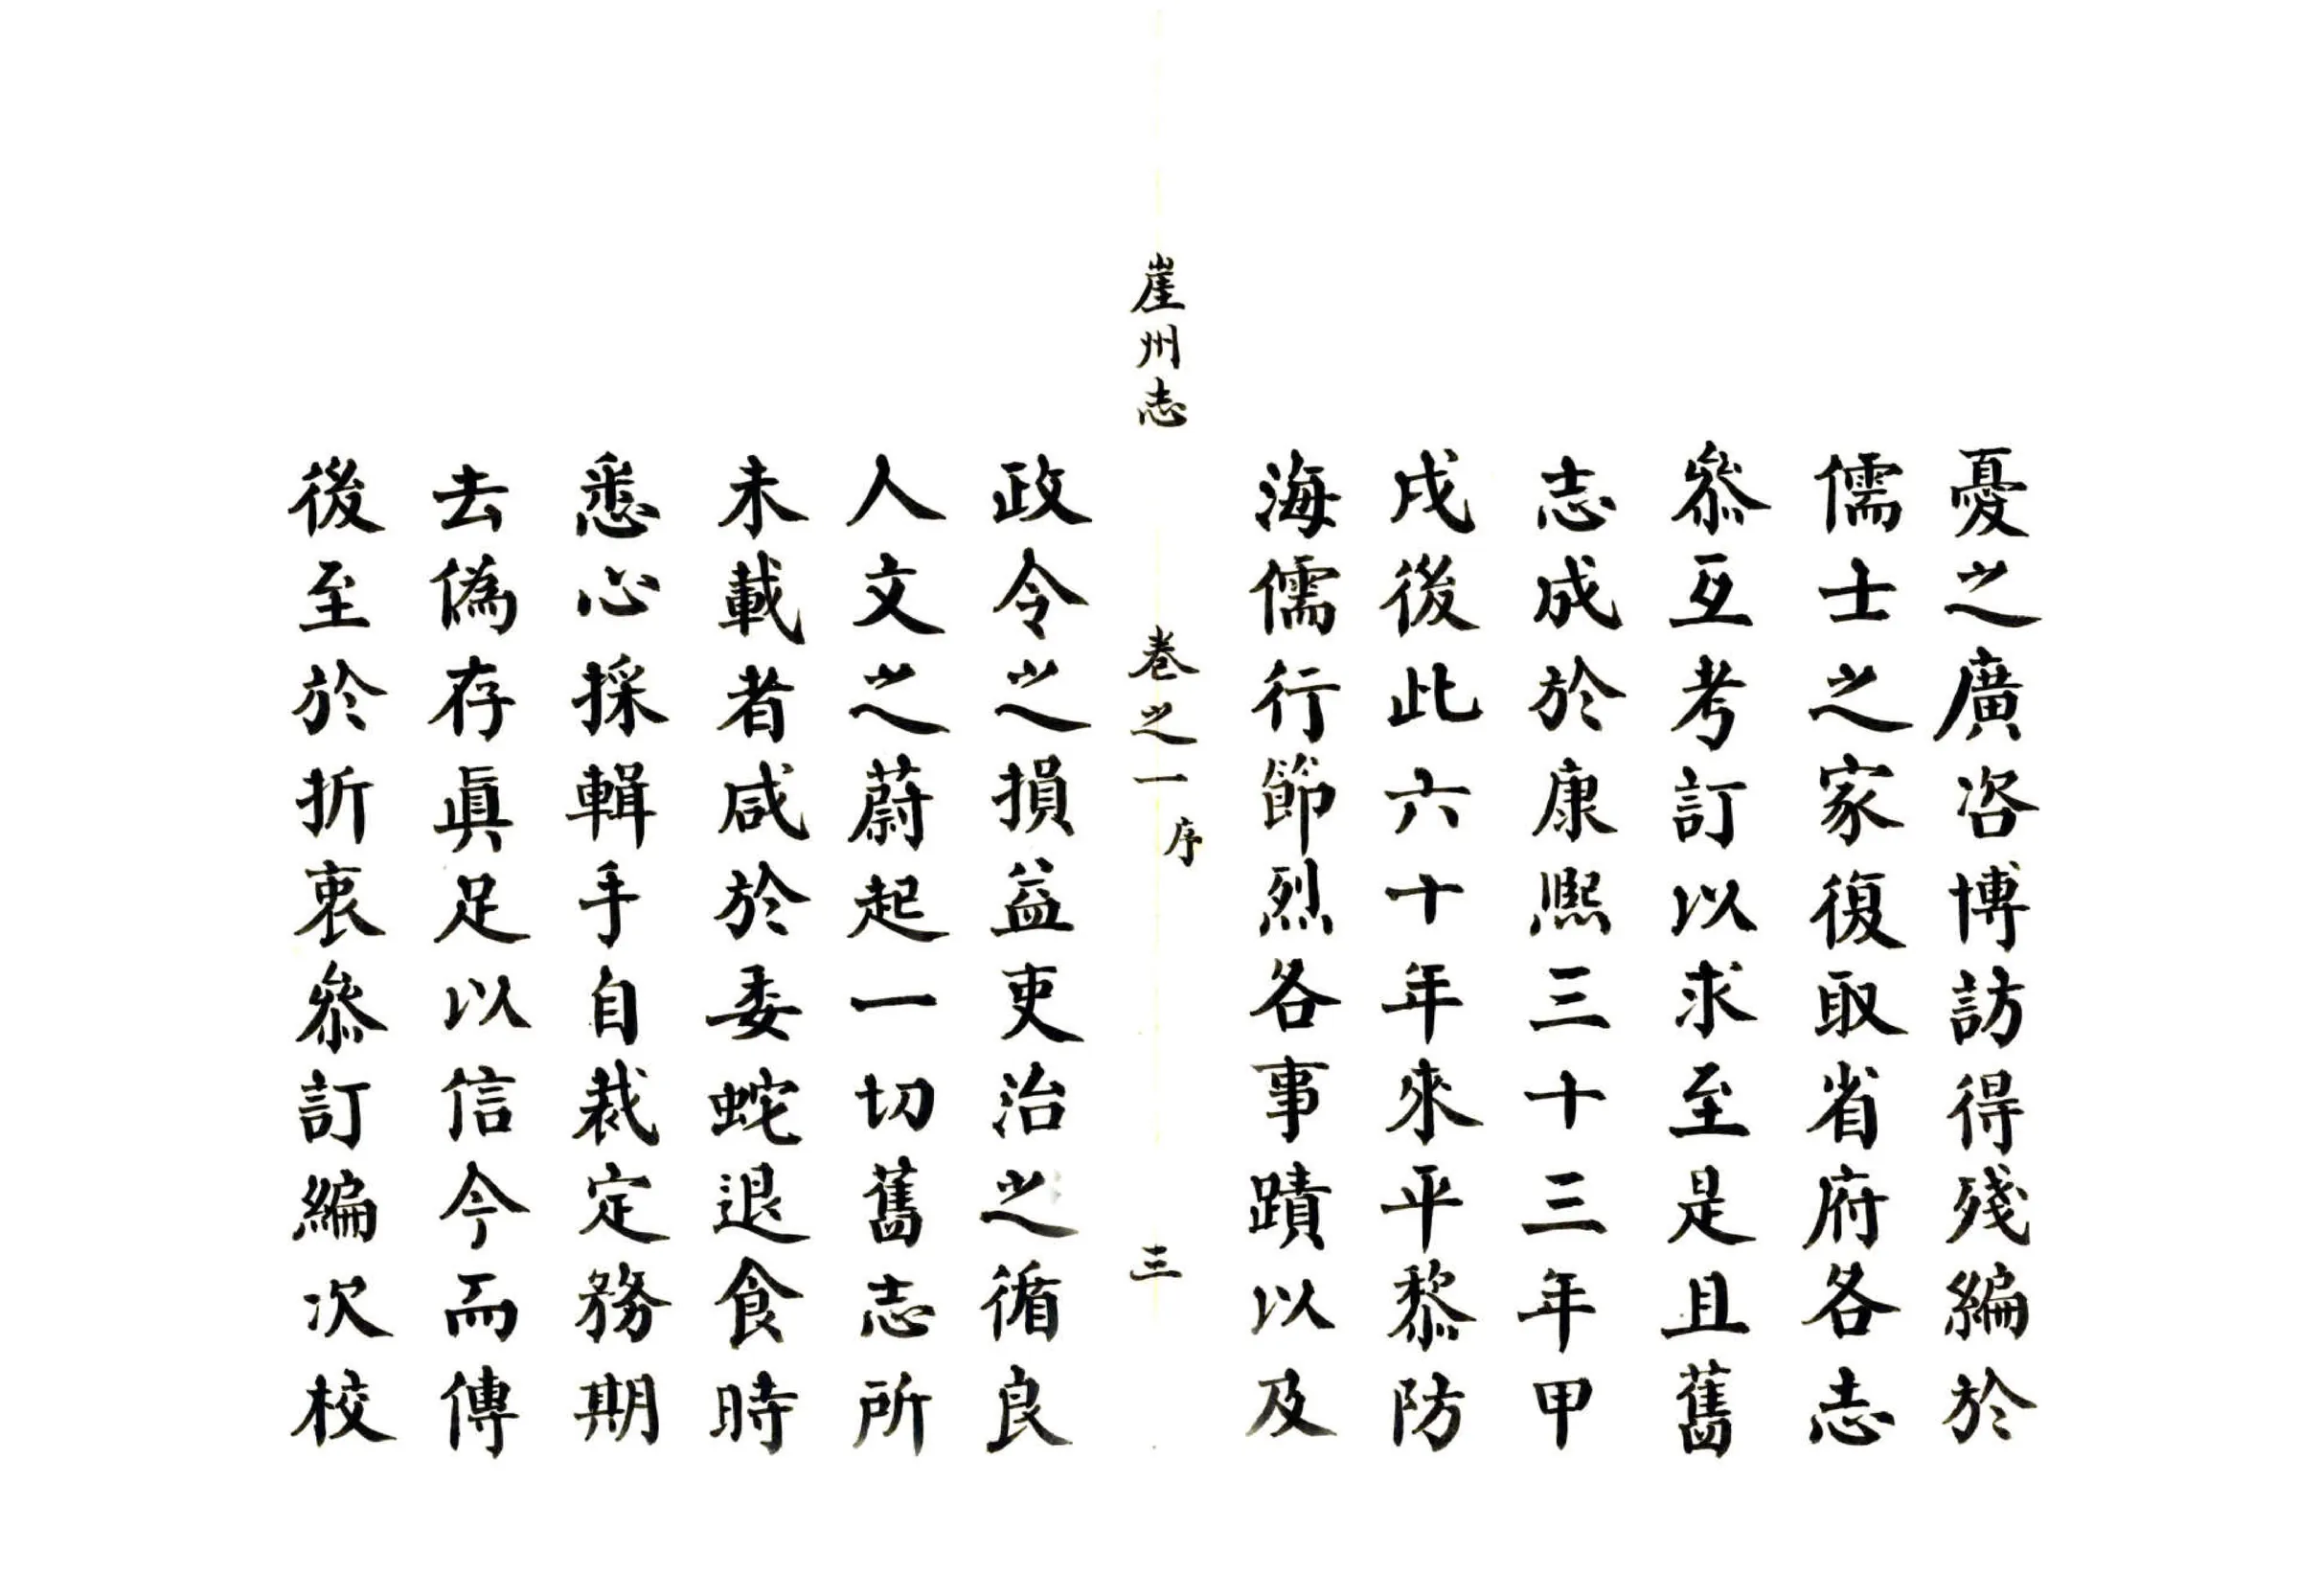 憂之廣咨博訪得殘編於
儒士之家復取省府各志
叅互考訂以求至是且舊
志成於康熙三十三年甲
戌後此六十年來平黎防
海儒行節烈各事蹟以及
崖州志 卷之一 序 三
政令之損益吏治之循良
人文之蔚起一切舊志所
未載者咸於委蛇退食時
悉心採輯手自裁定務期
去偽存眞足以信今而傳
後至於折衷叅訂編次校